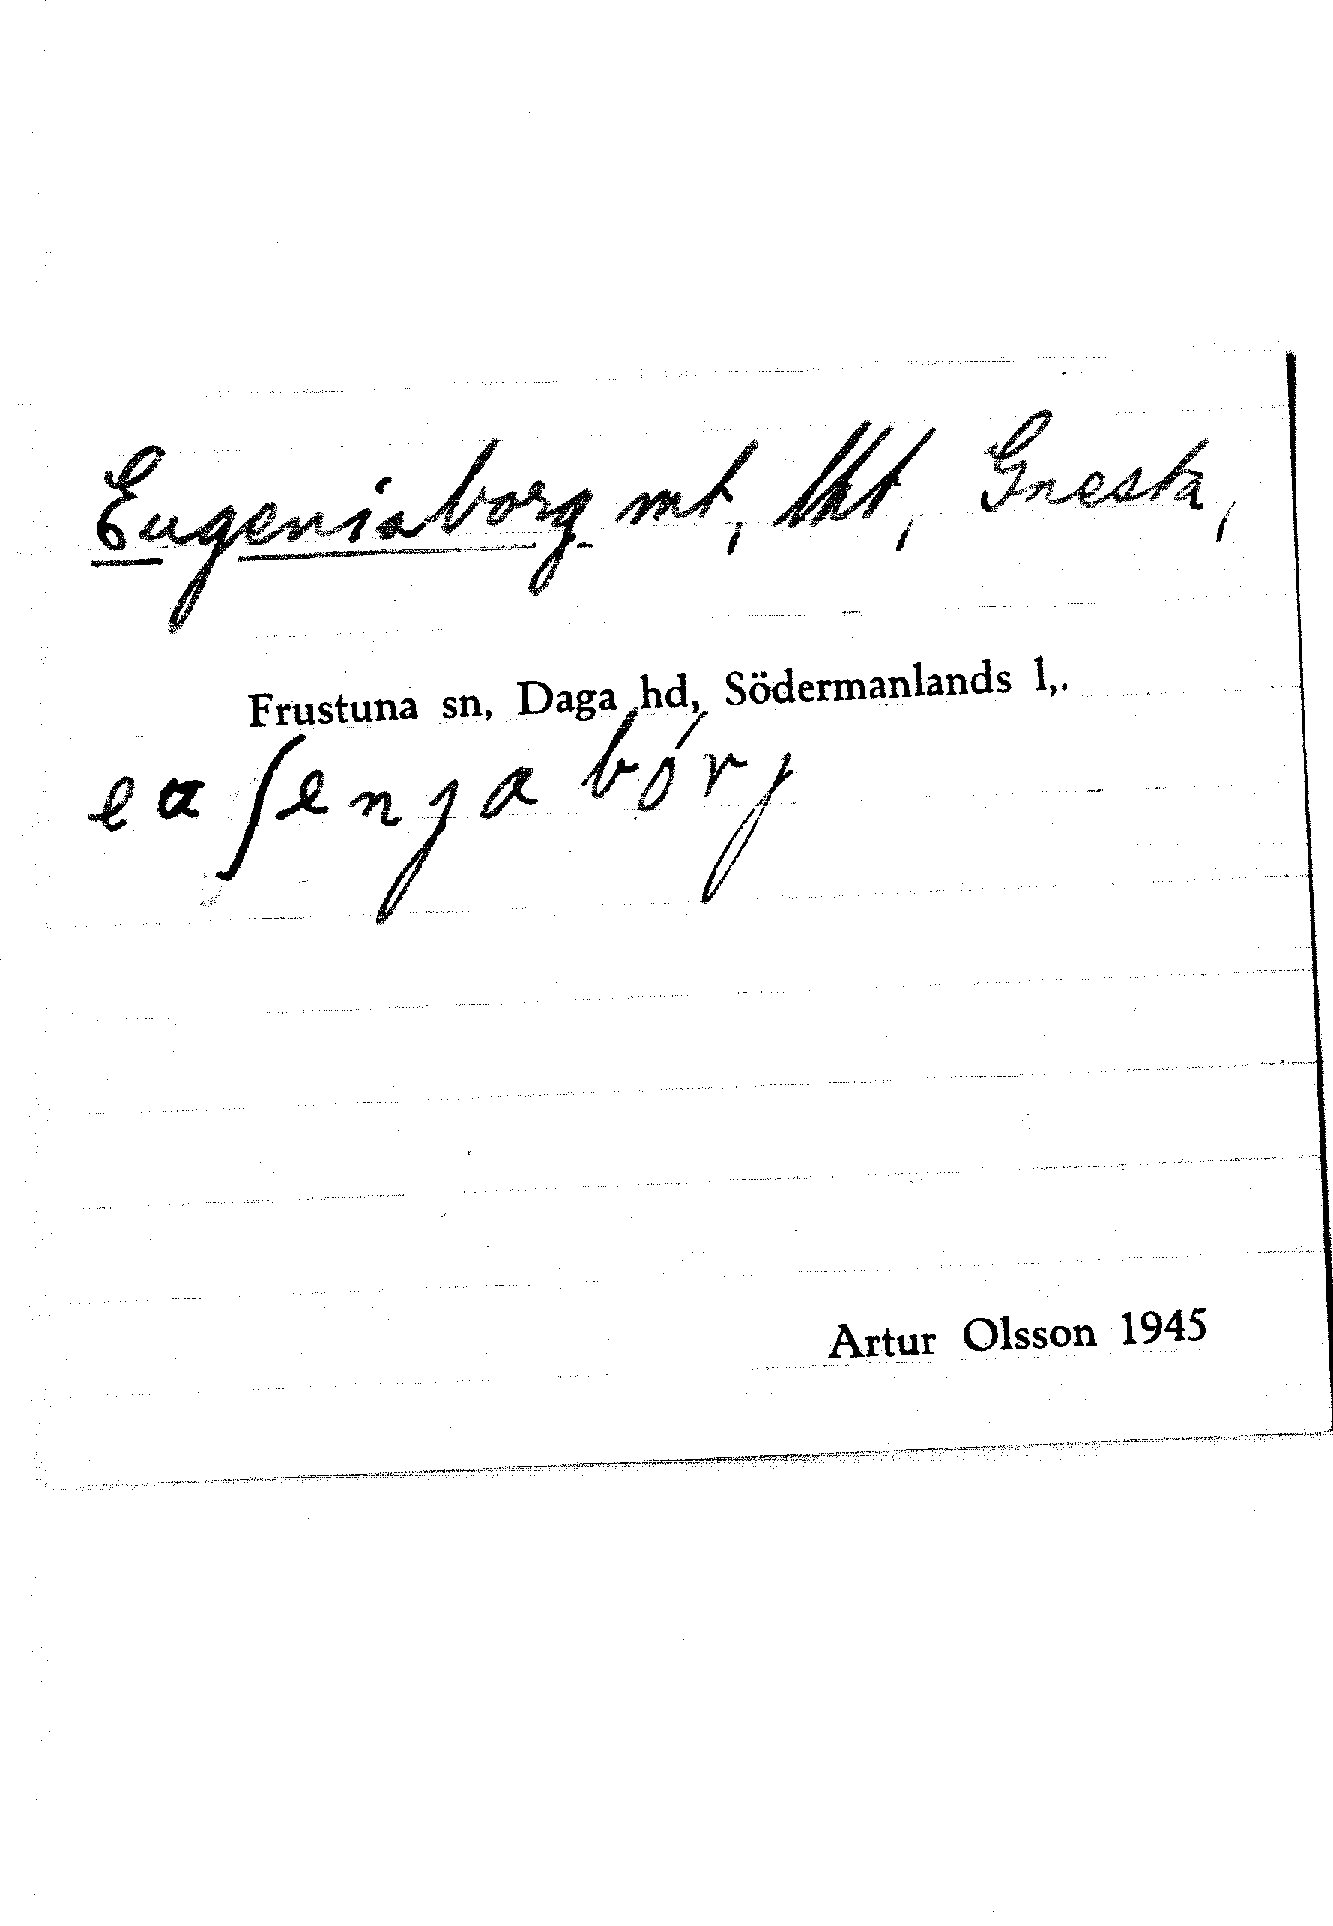 Eugeniaborg mt, tkt, Gnesta,
Frustuna sn, Daga hd, Södermanlands l,.
eaʃenjabórj
Artur Olsson 1945